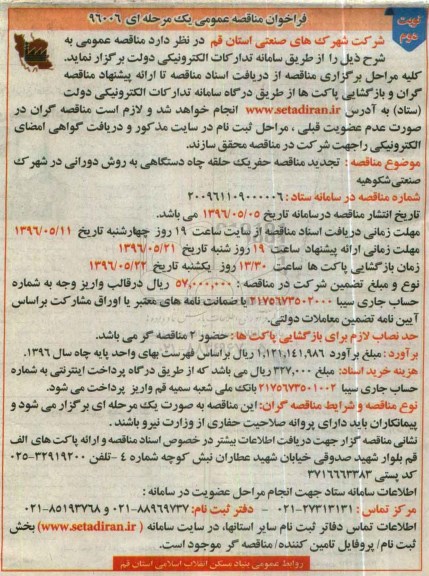 نوبت دوم
فراخوان مناقصه عمومی یک مرحله ای ۹۶۰۰۶
شرکت شهرک های صنعتی استان قم در نظر دارد مناقصه عمومی به
شرح ذیل را از طریق سامانه تدارکات الکترونیکی دولت برگزار نماید.
کلیه مراحل برگزاری مناقصه از دریافت اسناد مناقصه تا ارائه پیشنهاد مناقصه
گران و بازگشایی پاکت ها از طریق درگاه سامانه تدارکات الکترونیکی دولت
(ستاد) به آدرس www.setadiran.ir انجام خواهد شد و لازم است مناقصه گران در
صورت عدم عضویت قبلی ، مراحل ثبت نام در سایت مذکور و دریافت گواهی امضای
الکترونیکی راجهت شرکت در مناقصه محقق سازند.
موضوع مناقصه : تجدید مناقصه حفریک حلقه چاه دستگاهی به روش دورانی در شهرک
صنعتی شکوهیه
شماره مناقصه در سامانه ستاد : ۲۰۰۹۶۱۱۰۹۰۰۰۰۰۶
تاریخ انتشار مناقصه درسامانه تاریخ ۱۳۹۶/۰۵/۰۵ می باشد.
مهلت زمانی دریافت اسناد مناقصه از سایت ساعت ۱۹ روز چهارشنبه تاریخ ۱۳۹۶/۰۵/۱۱
مهلت زمانی ارائه پیشنهاد ساعت ۱۹ روز شنبه تاریخ ۱۳۹۶/۰۵/۲۱
زمان بازگشایی پاکت ها ساعت ۱۳/۳۰ روز یکشنبه تاریخ ۱۳۹۶/۰۵/۲۲
نوع و مبلغ تضمین شرکت در مناقصه : ۵۷,۰۰۰,۰۰۰ ریال درقالب واریز وجه به شماره
حساب جاری سیبا ۲۱۷۵۶۷۳۵۰۲۰۰۰ یا ضمانت نامه های معتبر یا اوراق مشارکت براساس
آیین نامه تضمین معاملات دولتی.
حد نصاب لازم برای بازگشایی پاکت ها : حضور ۲ مناقصه گر می باشد.
برآورد : مبلغ برآورد ۱,۱۲۱,۱۴۱,۹۸۶ ریال براساس فهرست بهای واحد پایه چاه سال ۱۳۹۶.
هزینه خرید اسناد: مبلغ ۳۲۷,۰۰۰ ریال می باشد که از طریق درگاه پرداخت اینترنتی به شماره
حساب جاری سیبا ۲۱۷۵۶۷۳۵۰۱۰۰۲ بانک ملی شعبه سمیه قم واریز پرداخت می شود.
نوع مناقصه و شرایط مناقصه گران: این مناقصه به صورت یک مرحله ای برگزار می شود و
پیمانکاران باید دارای پروانه صلاحیت حفاری از وزارت نیرو باشند .
نشانی مناقصه گزار جهت دریافت اطلاعات بیشتر در خصوص اسناد مناقصه و ارائه پاکت های الف
قم بلوار شهید صدوقی خیابان شهید عطاران نبش کوچه شماره ۴ -تلفن ۳۲۹۱۹۲۰۰-۰۲۵
کد پستی ۳۷۱۶۶۶۳۳۸۳
اطلاعات سامانه ستاد جهت انجام مراحل عضویت در سامانه :
مرکز تماس : ۲۷۳۱۳۱۳۱-۰۲۱ - دفتر ثبت نام: ۸۸۹۶۹۷۳۷-۰۲۱ و ۸۵۱۹۳۷۶۸-۰۲۱
اطلاعات تماس دفاتر ثبت نام سایر استانها، در سایت سامانه ( www.setadiran.ir) بخش
ثبت نام/ پروفایل تامین کننده/ مناقصه گر موجود است.
روابط عمومی بنیاد مسکن انقلاب اسلامی استان قم